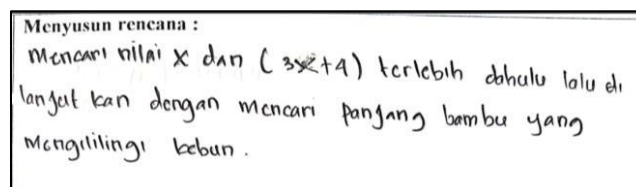 Menyusun rencana :
Mencari nilai x dan (3x+4) terlebih dahulu lalu di
lanjut kan dengan mencari panjang bambu yang
Mengililingi kebun .